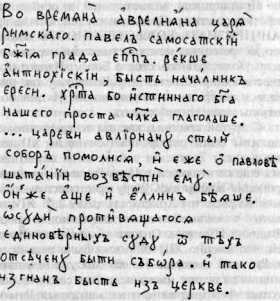 Во времѧна а҆врелиѧ́на царѧ̀
римскаго. павелъ самосатскїи
бж҃їѧ града еп҃пъ. ре́кше
а҆нтиохїскїи, бысть нача́лникъ
ереси. хр҃та бо и҆стиннаго бг҃а
нашего проста чл҃ка глаголаше.
... цареви авлїриану ст҃ыи
соборъ помолисѧ, и҆ еже ѡ҆ павловѣ
шатанїи возвѣсти е҆мꙋ̀.
ѻ҆н́же аще и҆ е҆ллинъ бѣѧше.
ѡ҆сꙋди проти́вѧщагосѧ
единовѣ́рныхъ сꙋдꙋ ѿ тѣхъ
отсѣченꙋ быти събо́ра. и҆ тако
и҆згнанъ бысть изъ церкве.